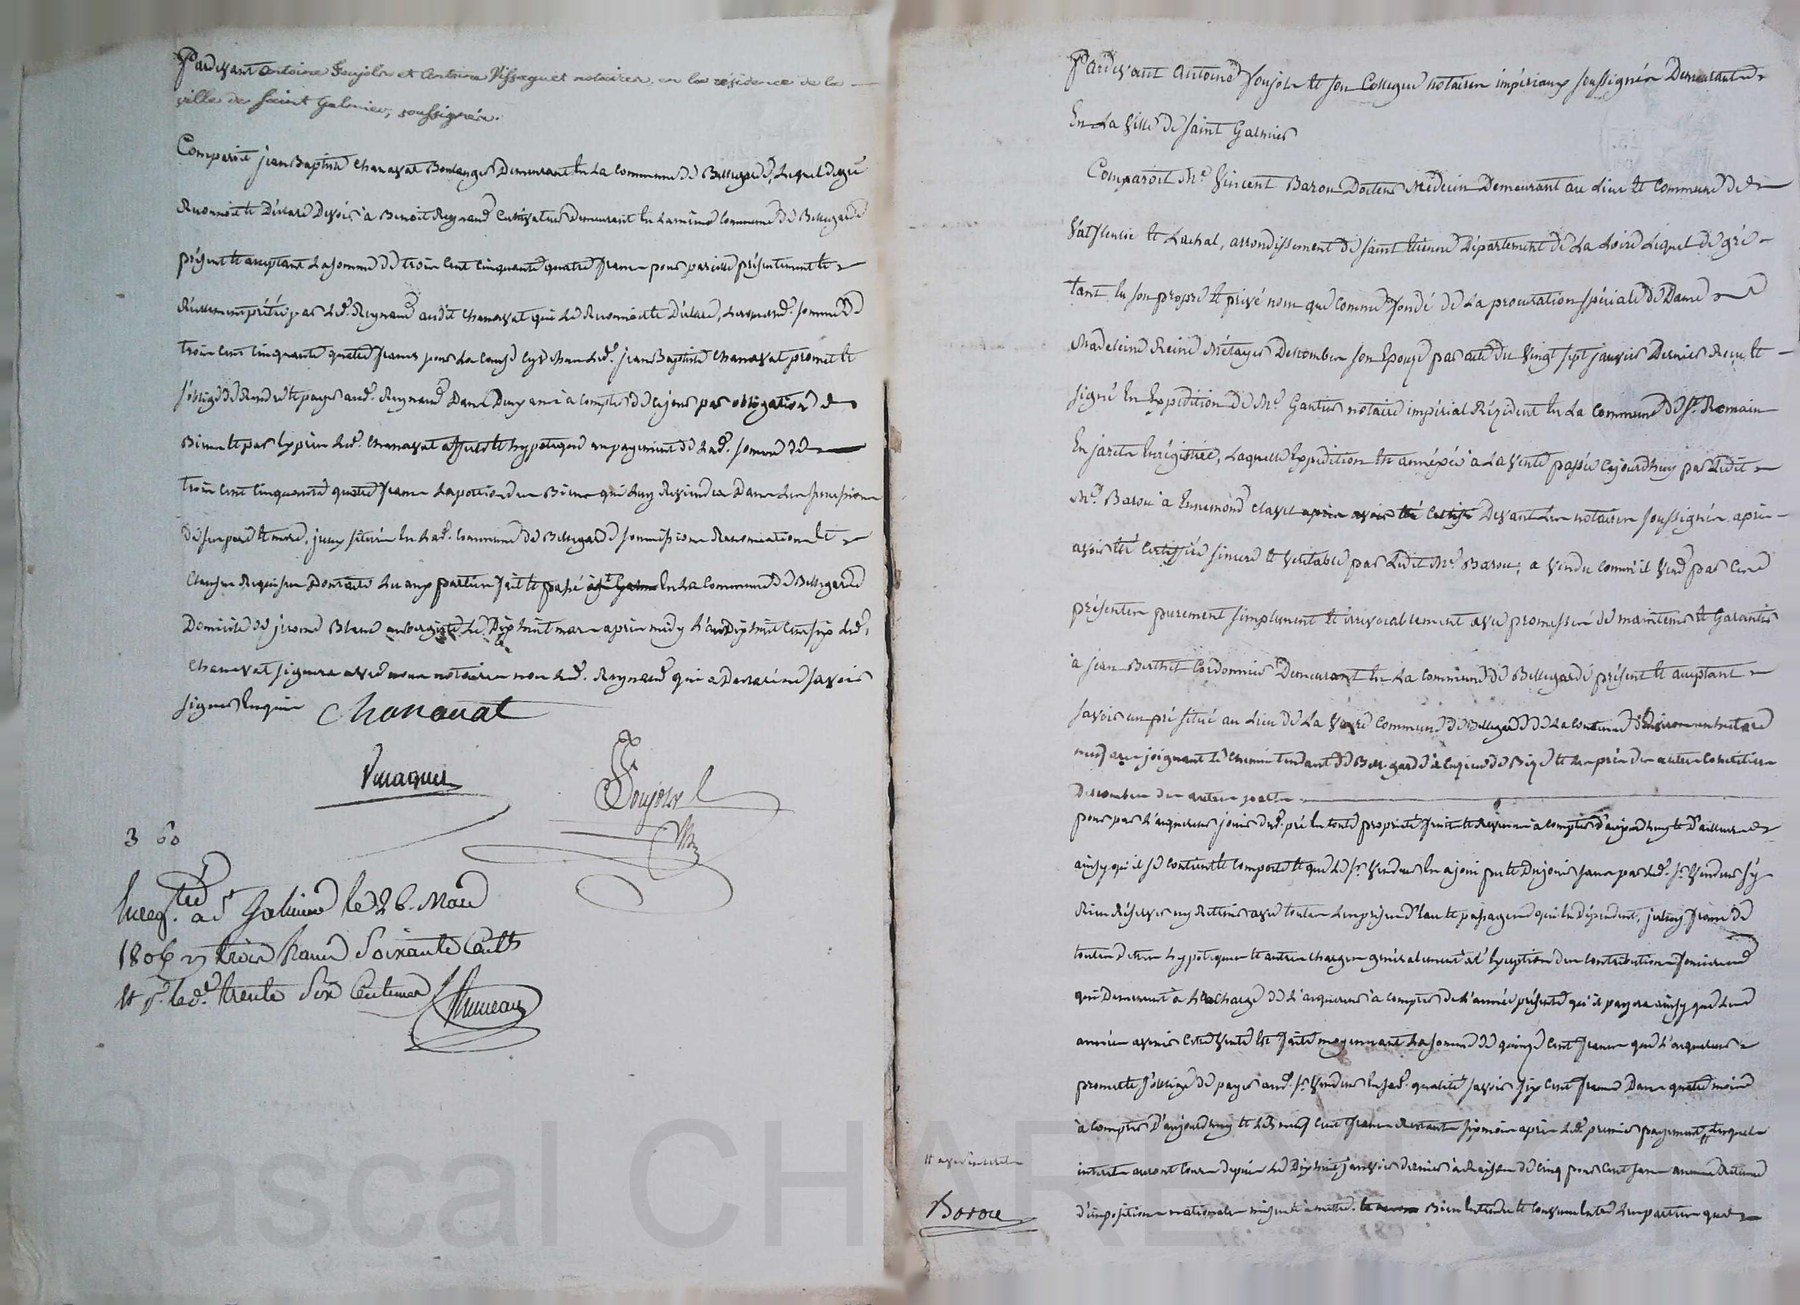 Pardevant Antoine Soujols et Antoine Vissaguet notaires, en la résidence de la
ville de Saint Galmier, soussignés.
Comparoit jean Baptiste Chanavat Boulanger Demeurant En la Commune de Bellegarde, Lequel de gré
Reconnoit et Déclare Devoir à Benoit Reynaud Cultivateur demeurant En la même Commune de Bellegarde
présent et acceptant la somme de trois Cent Cinquante quatre francs pour pareille présentement et
Réellement prêtée par led. Reynaud audit Chanavat qui le Reconnoit et Déclare, Laquelle d. somme de
trois Cent Cinquante quatre francs pour la Cause Cy led. jean Baptiste Chanavat promet et
s'oblige de Rendre et payer aud. Reynaud Dans Deux ans à Compter de Ce jour par obligation de
Biens et par Exprès led. Chanavat affecte et hypotèque au payement de lad. somme de
trois Cent Cinquante quatre francs la portion des Biens qui luy Reviendra Dans les successions
de ses père et mère, situés En lad. Commune de Bellegarde soumissions Renonciations et
Clauses Requises Dont acte Lu aux parties fait et passé En La Commune de Bellegarde
Domicile de jerome Blanc aubergiste Le Dix huit mars après midy L'an Dix huit Cent six led.
Chanavat signera avec nous notaires non led. Reynaud qui a Déclaré ne savoir
signer Enquis Chanavat
Vissaguet
Soujols
3 60
Enregistré à St Galmier le 26 Mars
1806 trois francs soixante Cents
et pr. led. trente six Centimes
Pardevant Antoine Soujols et son Collegue notaires impériaux soussignés Demeurant
En La Ville de Saint Galmier
Comparoit Mr. Vincent Barou Docteur Médecin Demeurant au Lieu et Commune de
Valfleurie et Lachal, arrondissement de Saint Etienne Département de La Loire Lequel de gré
tant En son propre et privé nom que comme fondé de La procuration spéciale de Dame
Madeleine Reine Métayer Descombes son Epouse par acte du Vingt sept janvier Dernier Reçu et
signé En Expédition de Me. Gautier notaire impérial Résident En La Commune de St. Romain
En jarets Enregistrée, Laquelle Expédition Est annéxée à La Vente passée Cejourdhuy par Ledit
Mr. Barou à Ennemond Clavel après avoir été Certifié Devant Les notaires soussignés, après
avoir été Certifiée sincere et veritable par Ledit Mr. Barou, a vendu comm'il vend par Ces
présentes purement simplement et irrévocablement avec promesse de maintenir et Garantir
à jean Berthet Cordonnier Demeurant En La Commune de Bellegarde présent et acceptant
savoir un pré situé au Lieu de La Commune de Bellegarde de La Contenue d'Environ un hectare
neuf ares joignant Le Chemin tendant de Bellegarde à de Bize et Les prés des autres
Descombes des autres parts
pour par L'acquéreur jouir dud. pré En toute propriété fruits et Revenus à Compter d'aujourdhuy et d'ailleurs
ainsy qu'il se Contient et Comporte et que Le sr. Vendeur En a joui pu et Du jouir sans par led. sr. Vendeur s'y
Rien Réserver ny Retenir avec toutes Les prises d'eau et passages qui En dépendent, franc de
toutes dettes hypotèques et autres charges généralement à L'Exception des Contributions foncieres
qui Demeurent à La Charge de L'acquéreur à Compter de L'année présente qu'il payera ainsy que Les
années à venir Cette Vente Est faite moyennant La somme de quinze Cent francs que L'acquéreur
promet et s'oblige de payer aud. sr. Vendeur En sad. qualité savoir six Cent francs Dans quatre mois
à Compter D'aujourdhuy et Les neuf Cent francs Restants six mois après Led. premier payement Lesquels
interets auront Cours depuis Le Dix huit janvier dernier à Raison de Cinq pour Cent sans aucune Retenue
d'imposition nationale mise et à mettre. Bien Entendu et Convenu Entre Les parties que
et avec interets
Barou
Pascal CHAREYRON